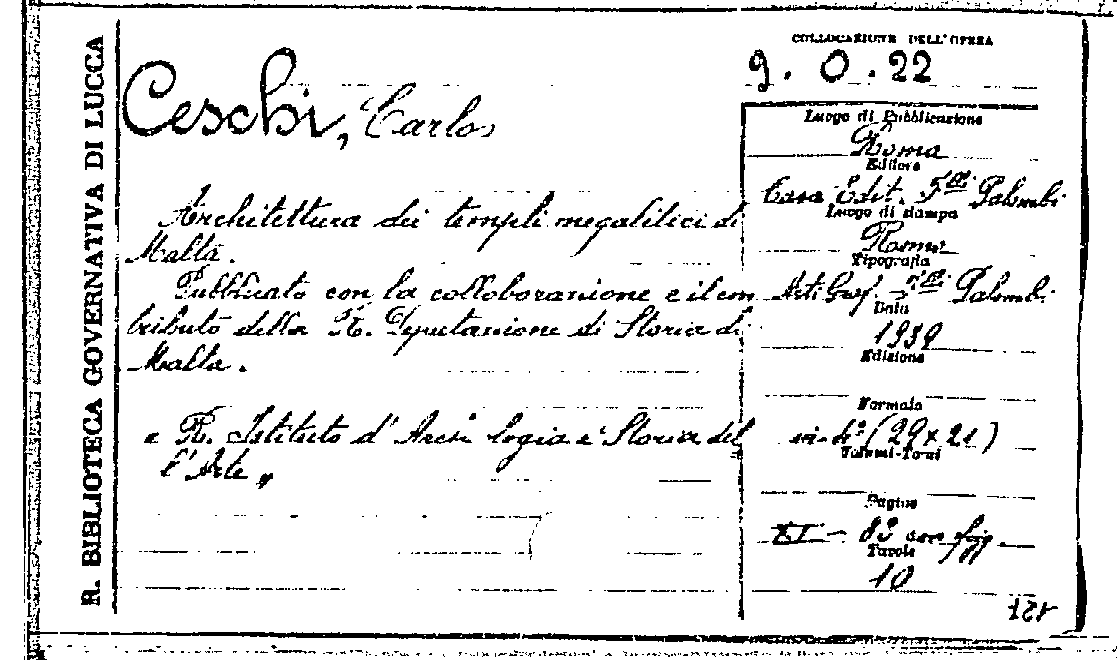 R. BIBLIOTECA GOVERNATIVA DI LUCCA
COLLOCAZIONE DELL'OPERA
9. O. 22
Ceschi, Carlos
Architettura dei templi megalitici di
Malta.
Pubblicato con la colloborazione e il con
tributo della R. Deputazione di Storia di
Malta.
R. Istituto d'Archeologia e Storia del
l'Arte„
Luogo di Pubblicazione
Roma
Editore
Casa Edit. F.lli Palombi
Luogo di stampa
Roma
Tipografia
Arti Graf. F.lli Palombi
Data
1939
Edizione
Formato
in-4° (29x21)
Volumi-Tomi
Pagine
XI - 83 con figg.
Tavole
10
121